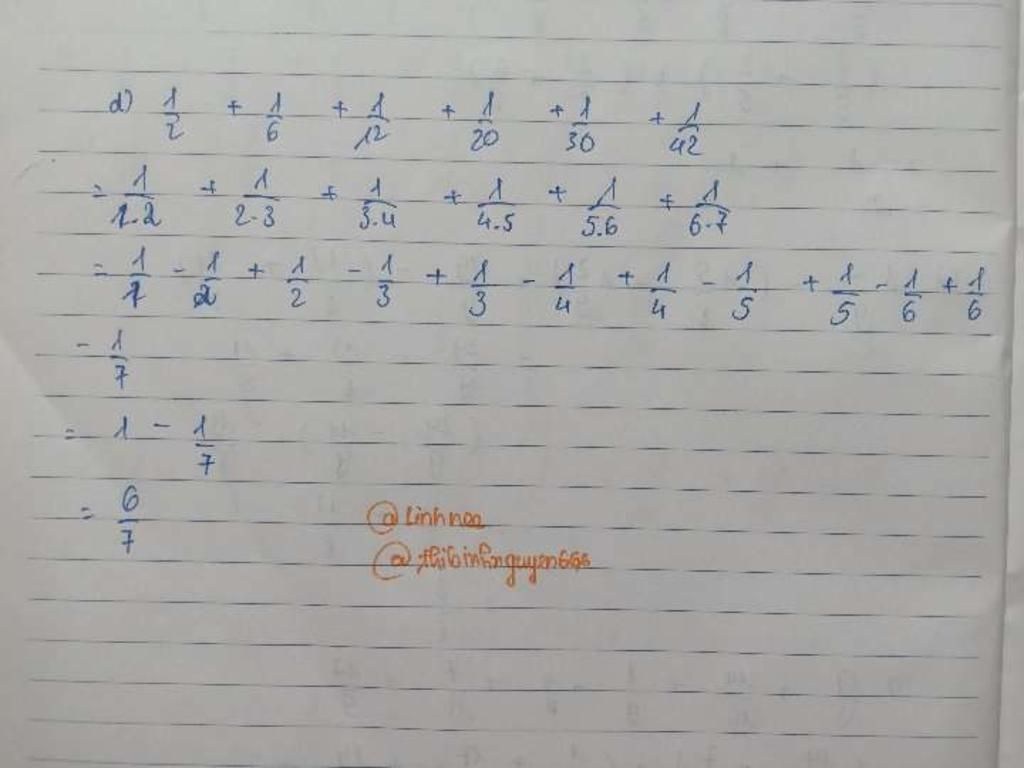 d) 1/2 + 1/6 + 1/12 + 1/20 + 1/30 + 1/42
= 1/1.2 + 1/2.3 + 1/3.4 + 1/4.5 + 1/5.6 + 1/6.7
= 1/1 - 1/2 + 1/2 - 1/3 + 1/3 - 1/4 + 1/4 - 1/5 + 1/5 - 1/6 + 1/6
- 1/7
= 1 - 1/7
= 6/7
@Linhnoa